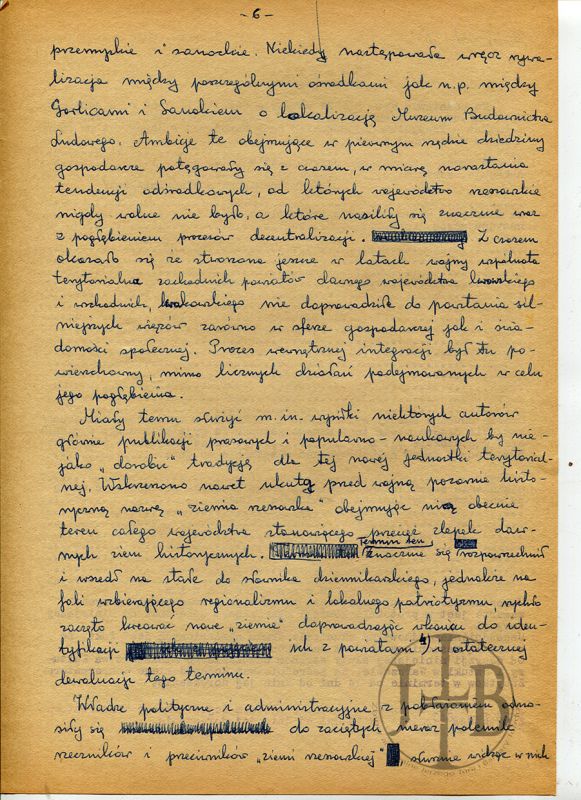 - 6 -
przemyskie i sanockie. Niekiedy następowała wręcz rywa-
lizacja między poszczególnymi ośrodkami jak n.p. między
Gorlicami i Sanokiem o lokalizację Muzeum Budownictwa
Ludowego. Ambicje te obejmujące w pierwszym rzędzie dziedziny
gospodarcze potęgowały się z czasem, w miarę narastania
tendencji odśrodkowych, od których województwo rzeszowskie
nigdy wolne nie było, a które nasiliły się znacznie wraz
z pogłębieniem procesów decentralizacji. Z czasem
okazało się że stworzona jeszcze w latach wojny wspólnota
terytorialna zachodnich powiatów dawnego województwa lwowskiego
i wschodnich, krakowskiego nie doprowadziła do powstania sil-
niejszych więzów zarówno w sferze gospodarczej jak i świa-
domości społecznej. Proces wewnętrznej integracji był tu po-
wierzchowny, mimo licznych działań podejmowanych w celu
jego pogłębienia.
Miały temu służyć m.in. wysiłki niektórych autorów
głównie publikacji prasowych i popularno-naukowych by nie-
jako „dorobić" tradycję dla tej nowej jednostki terytorial-
nej. Wskrzeszono nawet ukutą przed wojną pozornie histo-
ryczną nazwę „ziemia rzeszowska" obejmując nią obecnie
teren całego województwa stanowiącego przecież zlepek daw-
nych ziem historycznych. Termin ten znacznie się rozpowszechnił
i wszedł na stałe do słownika dziennikarskiego, jednakże na
fali wzbierającego regionalizmu i lokalnego patriotyzmu, rychło
zaczęto kreować nowe „ziemie" doprowadzając wkońcu do iden-
tyfikacji ich z powiatami 4) i ostatecznej
dewaluacji tego terminu.
Władze polityczne i administracyjne z pobłażaniem odno-
siły się do zaciętych nieraz polemik
rzeczników i przeciwników „ziemi rzeszowskiej" słusznie widząc w nich
JTB